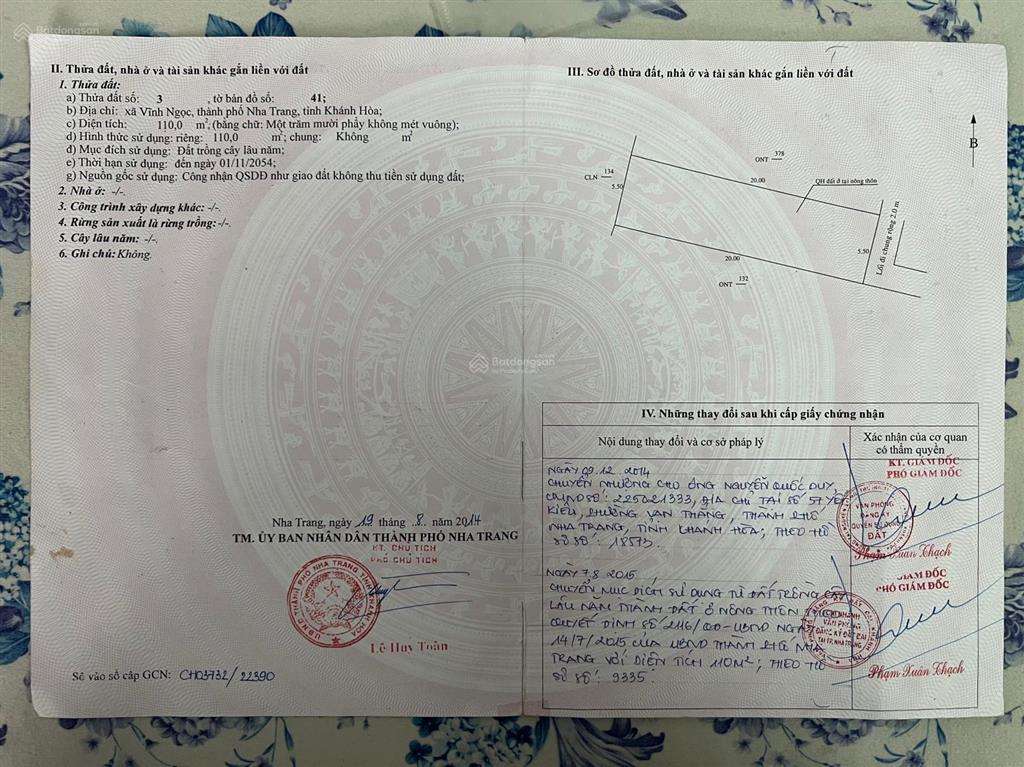 II. Thửa đất, nhà ở và tài sản khác gắn liền với đất
1. Thửa đất:
a) Thửa đất số: 3 , tờ bản đồ số: 41;
b) Địa chỉ: xã Vĩnh Ngọc, thành phố Nha Trang, tỉnh Khánh Hòa;
c) Diện tích: 110,0 m², (bằng chữ: Một trăm mười phẩy không mét vuông);
d) Hình thức sử dụng: riêng: 110,0 m²; chung: Không m²
đ) Mục đích sử dụng: Đất trồng cây lâu năm;
e) Thời hạn sử dụng: đến ngày 01/11/2054;
g) Nguồn gốc sử dụng: Công nhận QSDĐ như giao đất không thu tiền sử dụng đất;
2. Nhà ở: -/-.
3. Công trình xây dựng khác: -/-.
4. Rừng sản xuất là rừng trồng: -/-.
5. Cây lâu năm: -/-.
6. Ghi chú: Không.
Nha Trang, ngày 19 tháng 8 năm 2014
TM. ỦY BAN NHÂN DÂN THÀNH PHỐ NHA TRANG
KT. CHỦ TỊCH
PHÓ CHỦ TỊCH
Lê Huy Toàn
Số vào sổ cấp GCN: CH03732/22390
III. Sơ đồ thửa đất, nhà ở và tài sản khác gắn liền với đất
B
ONT 378
CLN 134
5.50
20.00
QH đất ở tại nông thôn
5.50
Lối đi chung rộng 2.0 m
20.00
ONT 132
IV. Những thay đổi sau khi cấp giấy chứng nhận
Nội dung thay đổi và cơ sở pháp lý
Xác nhận của cơ quan
có thẩm quyền
NGÀY 09.12.2014
CHUYỂN NHƯỢNG CHO ÔNG NGUYỄN QUỐC DUY,
CMND SỐ: 225021333, ĐỊA CHỈ TẠI SỐ 57 YẾT
KIÊU, PHƯỜNG VẠN THẮNG, THÀNH PHỐ
NHA TRANG, TỈNH KHÁNH HÒA; THEO HỒ
SƠ SỐ: 18573.
KT. GIÁM ĐỐC
PHÓ GIÁM ĐỐC
VĂN PHÒNG
ĐĂNG KÝ
QUYỀN SỬ DỤNG
ĐẤT
Phạm Xuân Thạch
NGÀY 7.8.2015
CHUYỂN MỤC ĐÍCH SỬ DỤNG TỪ ĐẤT TRỒNG CÂY
LÂU NĂM THÀNH ĐẤT Ở NÔNG THÔN THEO
QUYẾT ĐỊNH SỐ 2116/QĐ-UBND NGÀY
14/7/2015 CỦA UBND THÀNH PHỐ NHA
TRANG VỚI DIỆN TÍCH 110M²; THEO HỒ
SƠ SỐ: 9335.
GIÁM ĐỐC
PHÓ GIÁM ĐỐC
CHI NHÁNH
VĂN PHÒNG
ĐĂNG KÝ ĐẤT ĐAI
TẠI TP. NHA TRANG
Phạm Xuân Thạch
Batdongsan
Batdongsan
Batdongsan